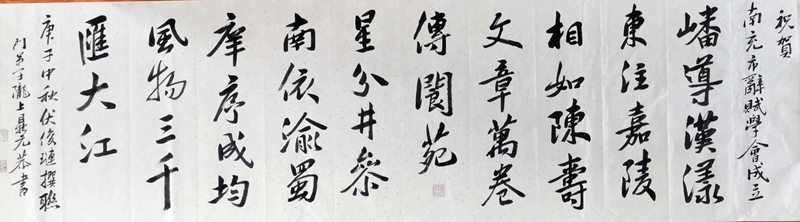 祝賀
南充市辭賦學會成立
嶓導漢漾
東注嘉陵
相如陳壽
文章萬卷
傳閬苑
星分井參
南依渝蜀
庠序成均
風物三千
匯大江
庚子中秋伏俊璉撰聯
門弟子隴上晁元恭書